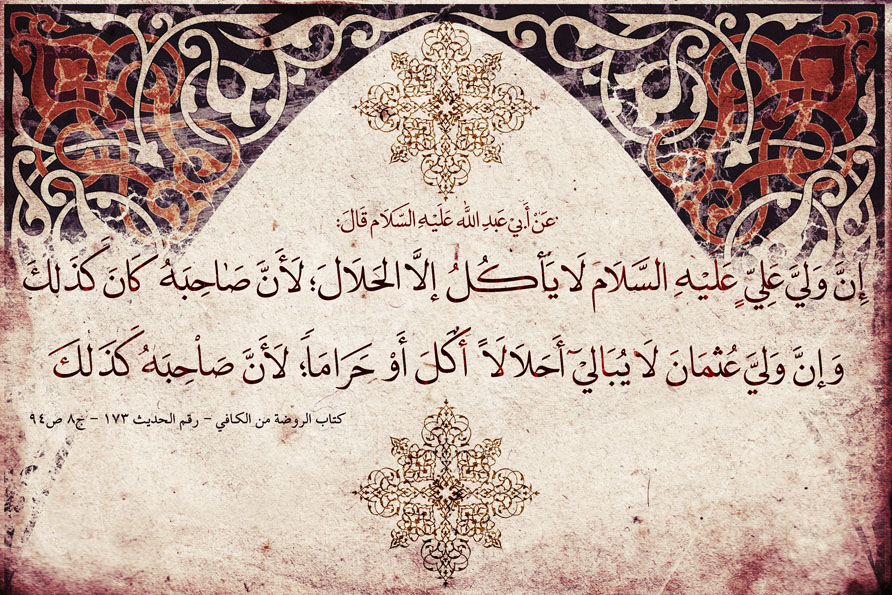 عَنْ أَبِيْ عَبدِ اللَّه عَلَيْهِ السَّلَام قَالَ:
إِنَّ وَلِيَّ عَلِيٍّ عَلَيْهِ السَّلَامَ لَا يَأْكُلُ إِلاَّ الحَلَالَ؛ لَأَنَّ صَاحِبَهُ كَانَ كَذَلِكَ
وَإِنَّ وَلِيَّ عُثمَانَ لَا يُبَالِيْ أَحَلَالَاً أَكَلَ أَوْ حَرَامَاً؛ لَأَنَّ صَاْحِبَهُ كَذَلِكَ
كتاب الروضة من الكافي - رقم الحديث ١٧٣ - ج٨ ص٩٤